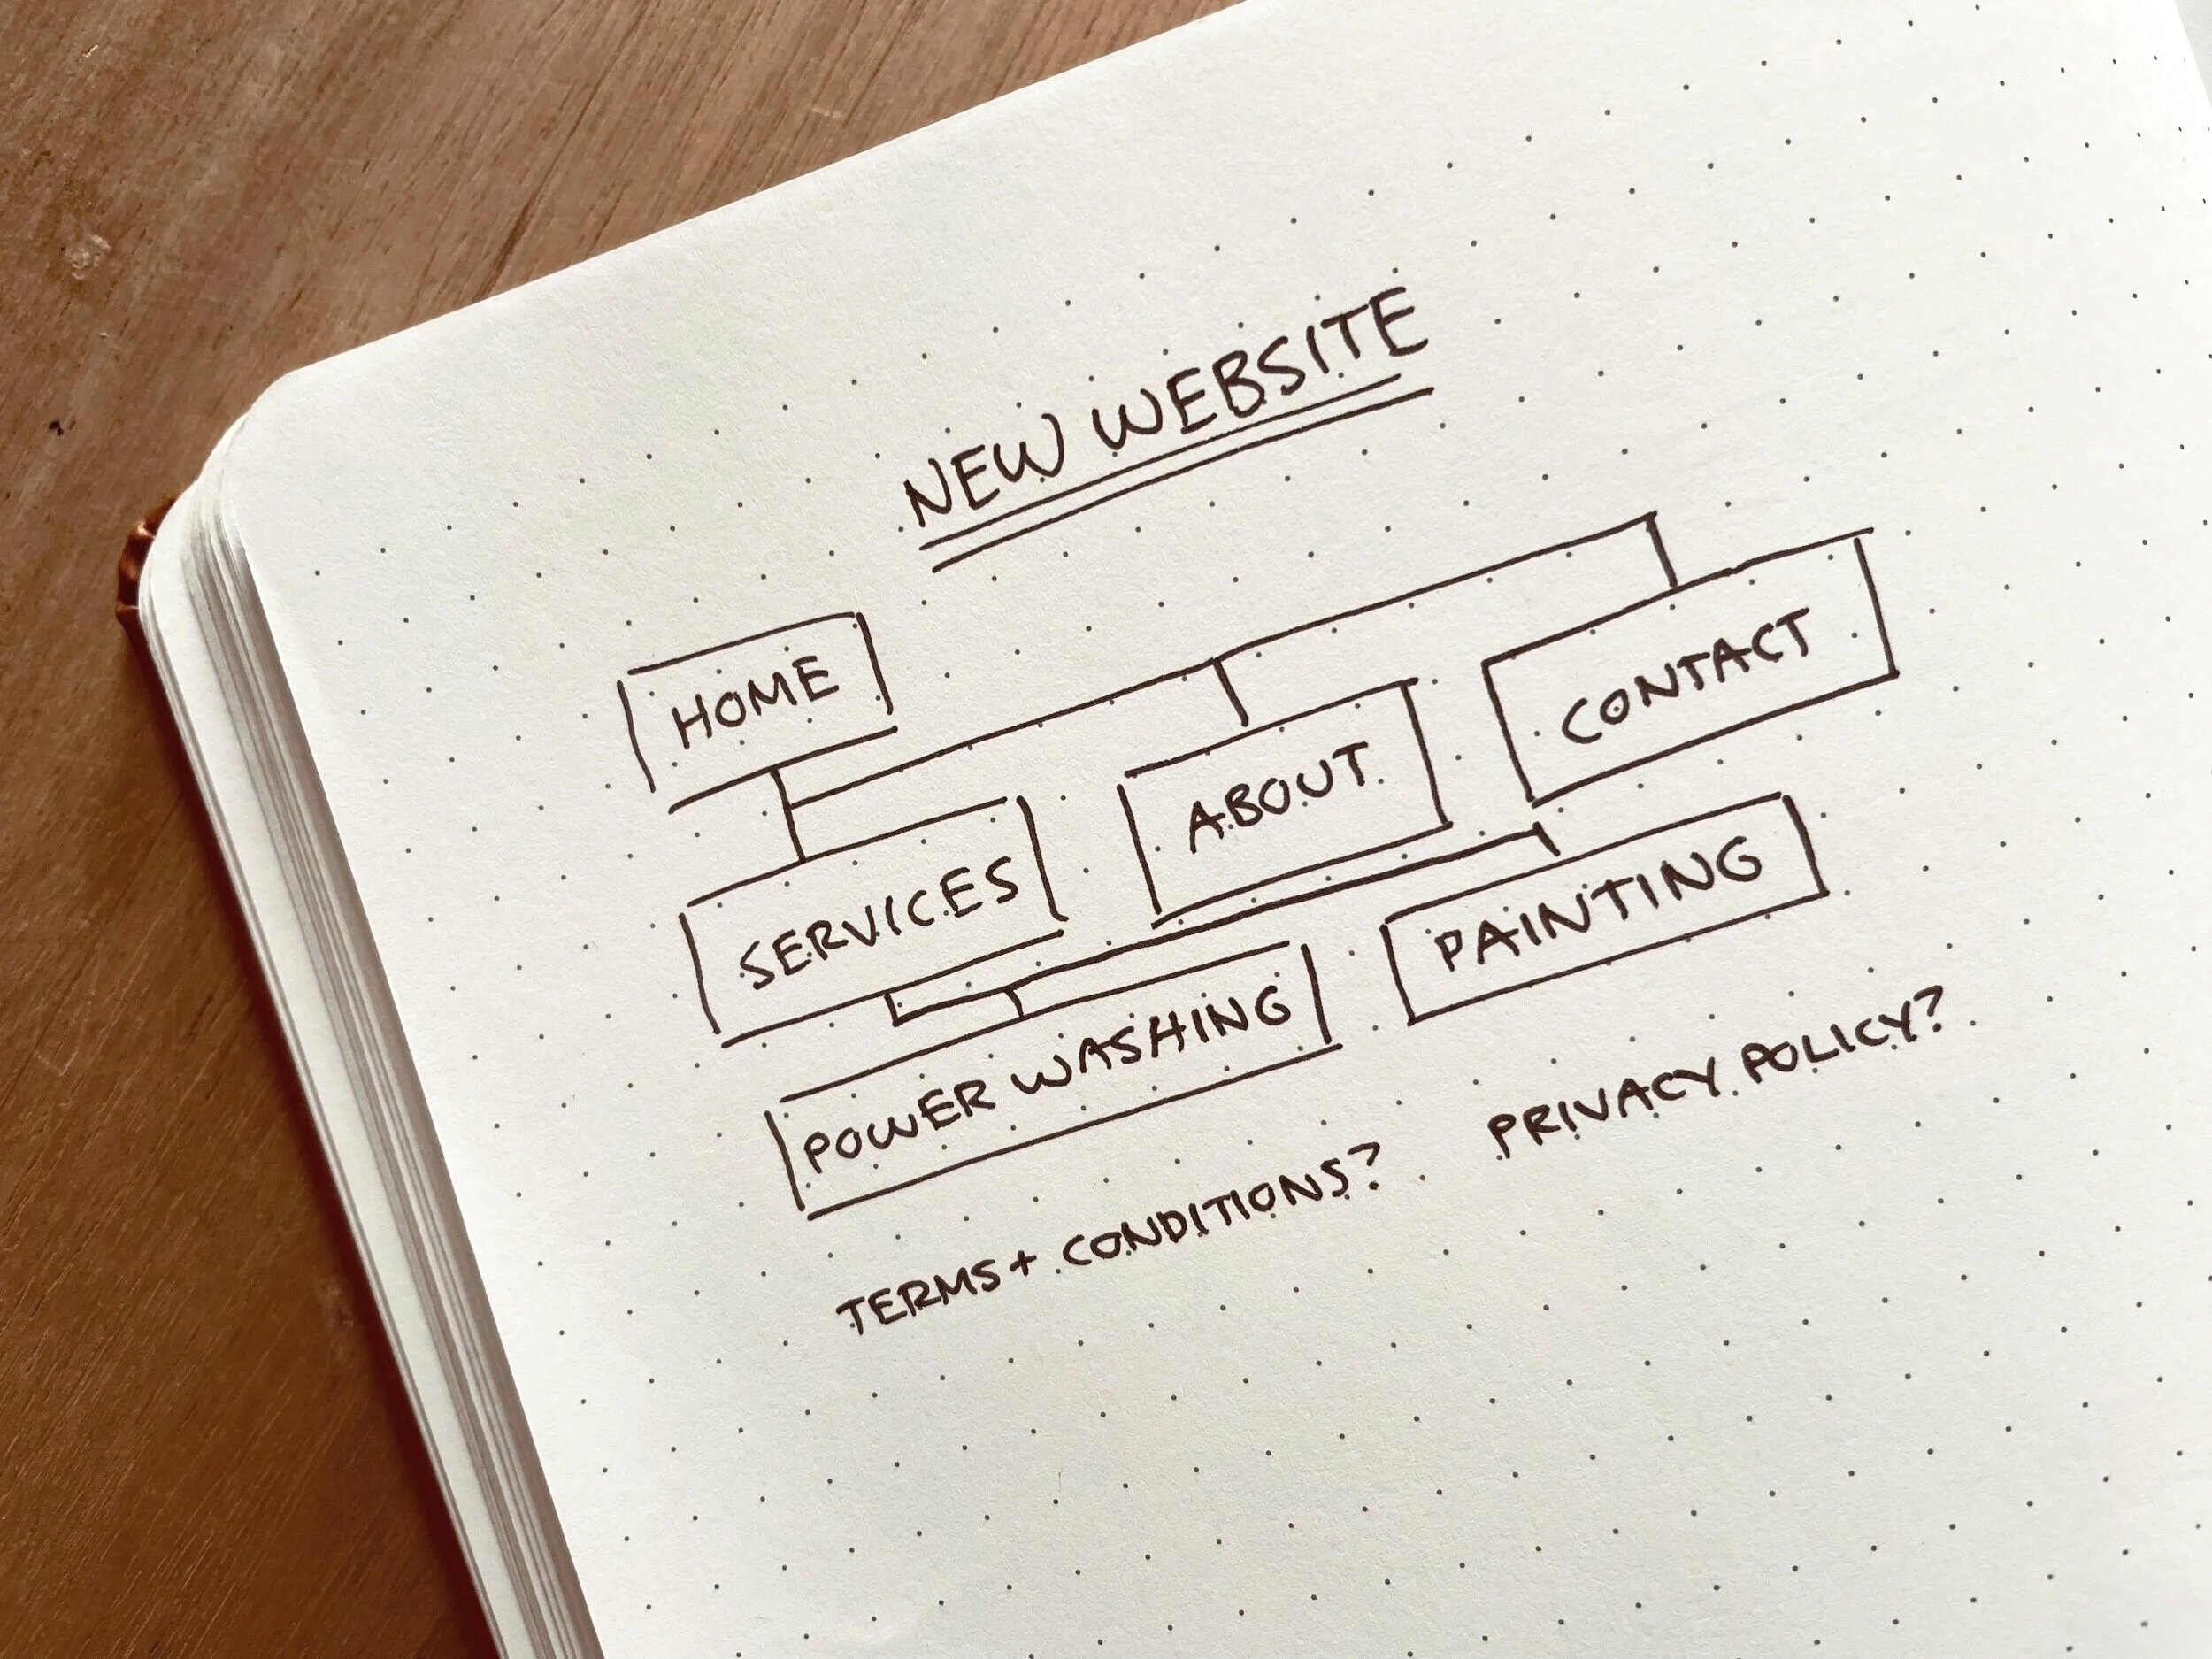 NEW WEBSITE
HOME
SERVICES
ABOUT
CONTACT
POWER WASHING
PAINTING
TERMS + CONDITIONS?
PRIVACY POLICY?